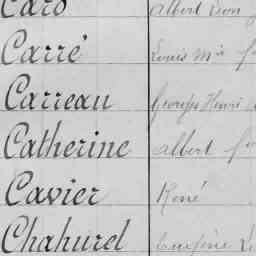 Caro Albert Léon
Carré Louis Mie
Carreau Georges Henri
Catherine Albert
Cavier René
Chahurel Eugène